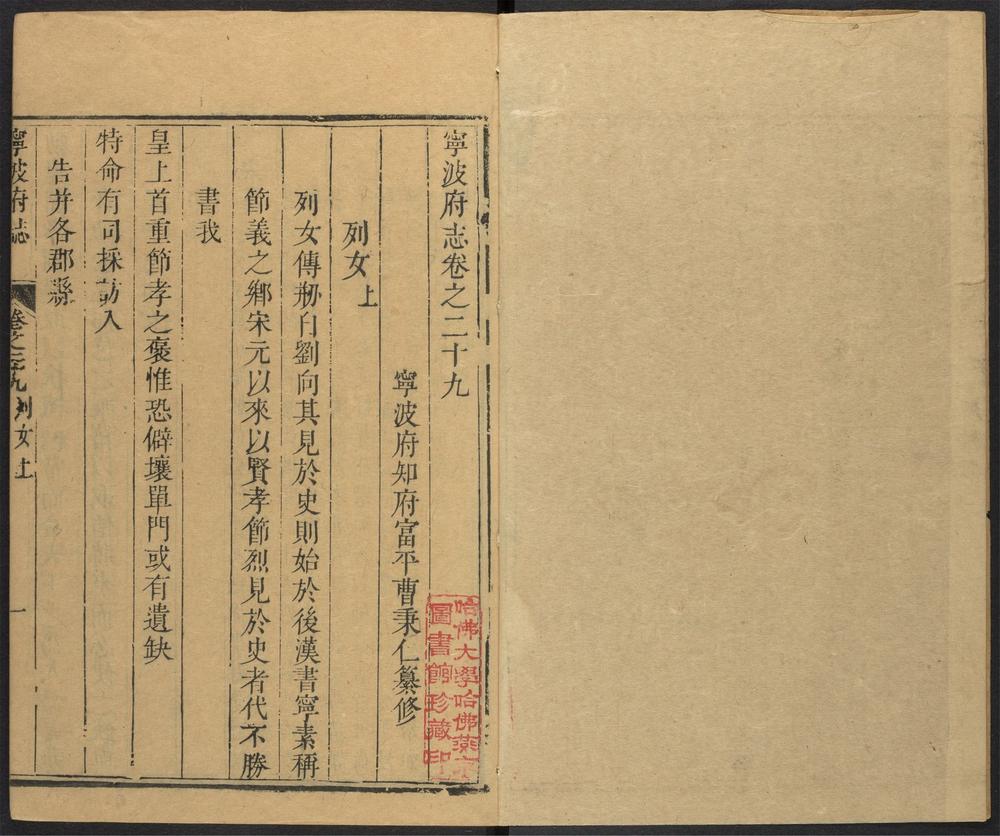 寧波府志卷之二十九
寧波府知府富平曹秉仁纂修
列女上
列女傳刱自劉向其見於史則始於後漢書寧素稱
節義之鄉宋元以來以賢孝節烈見於史者代不勝
書我
皇上首重節孝之褒惟恐僻壤單門或有遺缺
特命有司採訪入
告并各郡縣
寧波府誌
卷之二十九列女上
一
哈佛大學哈佛燕京
圖書館珍藏印